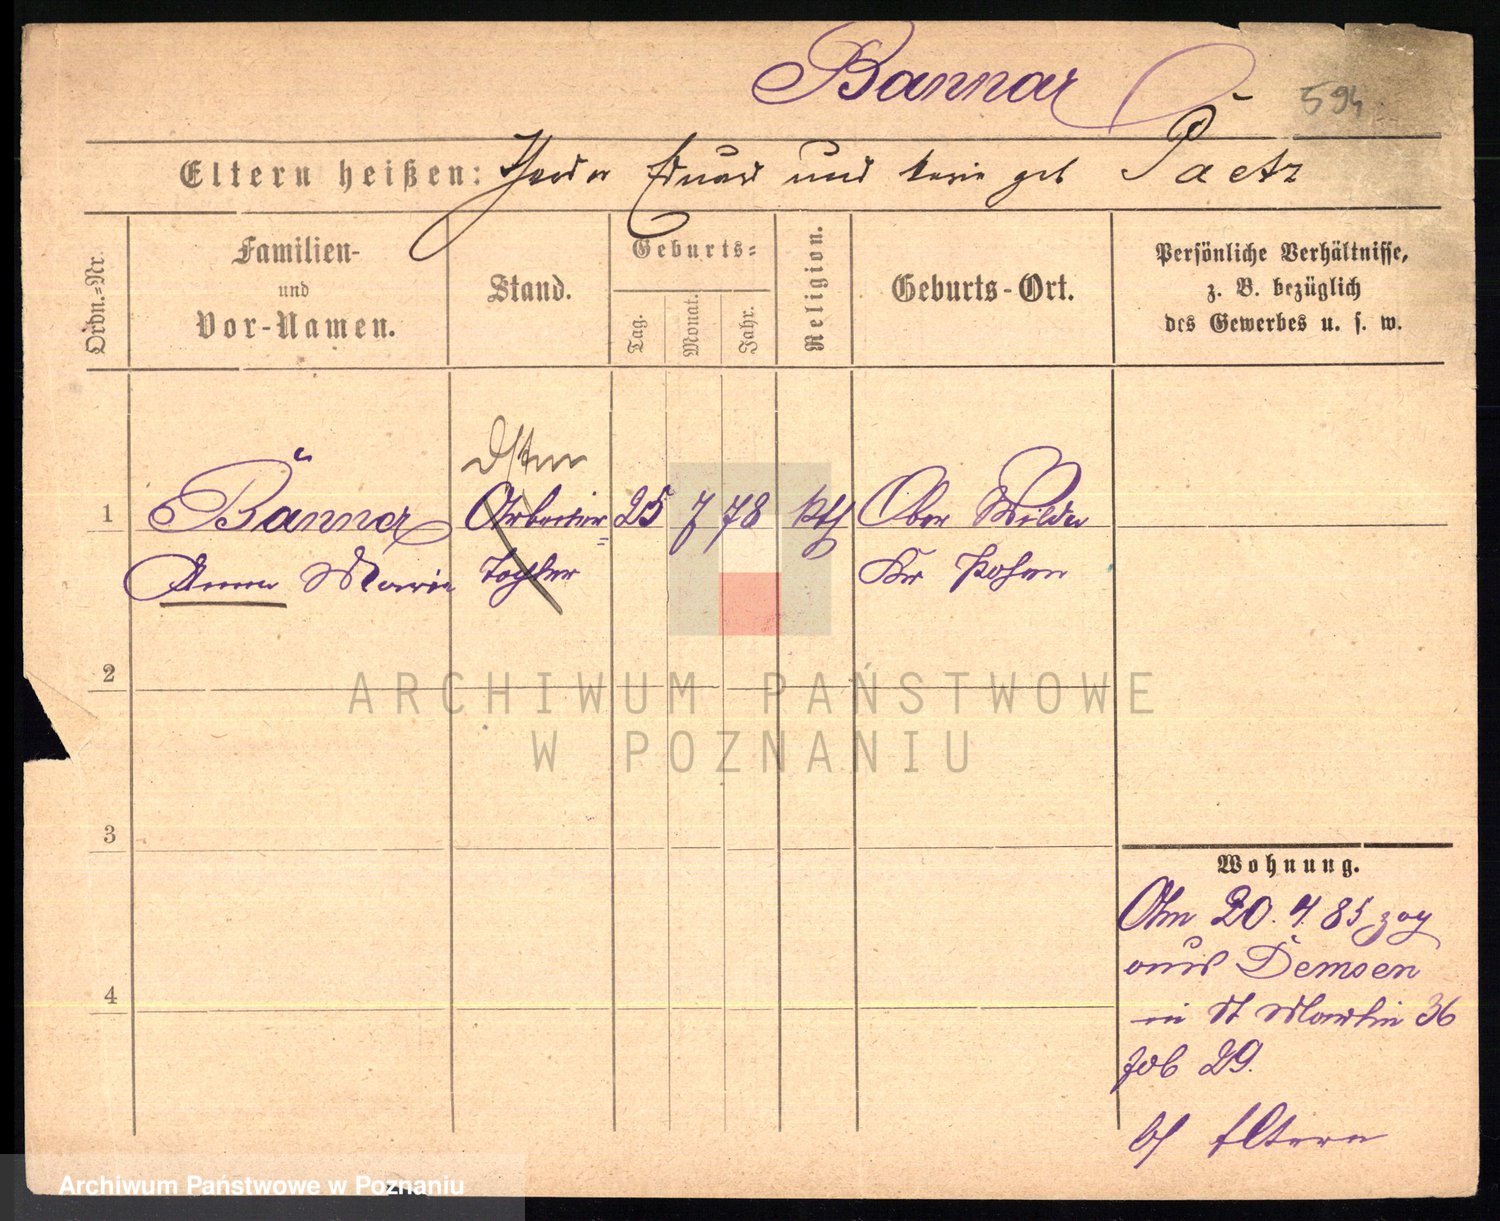 Bannar
594
Eltern heißen: Theodor Eduard und Marie geb Paetz
Ordn.=Nr.
Familien-
und
Vor-Namen.
Stand.
Geburts=
Tag.
Monat.
Jahr.
Religion.
Geburts-Ort.
Persönliche Verhältnisse,
z. B. bezüglich
des Gewerbes u. s. w.
1
Bännar
Anna Marie
Arbeiter=
25 7 78 kth
Ober Wilda
Kr Posen
2
3
4
Wohnung.
Am 20.4.85 zog
aus Demsen
in St Martin 36
29.
b/ Eltern
ARCHIWUM PAŃSTWOWE
W POZNANIU
Archiwum Państwowe w Poznaniu